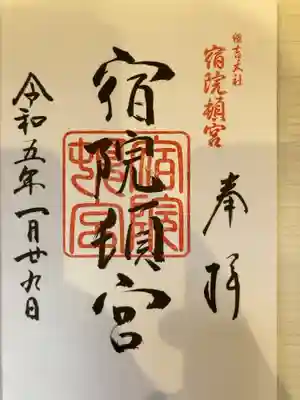 住吉大社
宿院頓宮
奉拝
宿院頓宮
宿院
頓宮
令和五年一月廿九日